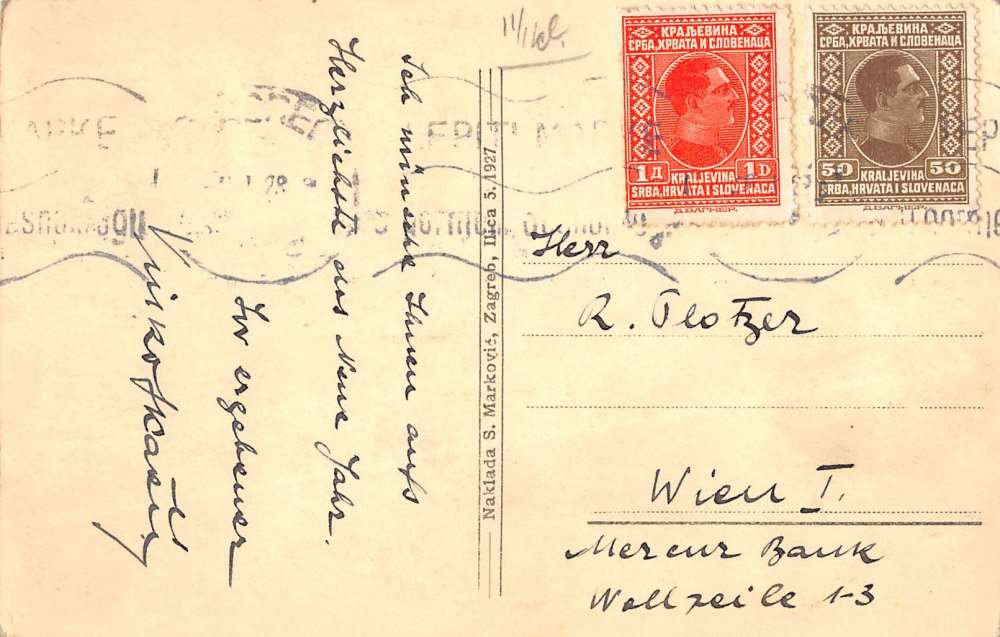 Ich wünsche Ihnen aufs
Herzlichste ins Neue Jahr.
Ihr ergebener
Naklada S. Marković, Zagreb, Ilica 5. 1927.
КРАЉЕВИНА
СРБА, ХРВАТА И СЛОВЕНАЦА
1Д 1D
KRALJEVINA
SRBA, HRVATA I SLOVENACA
КРАЉЕВИНА
СРБА, ХРВАТА И СЛОВЕНАЦА
50 50
KRALJEVINA
SRBA, HRVATA I SLOVENACA
Herr
R. Plotzer
Wien I.
Mercur Bank
Wollzeile 1-3